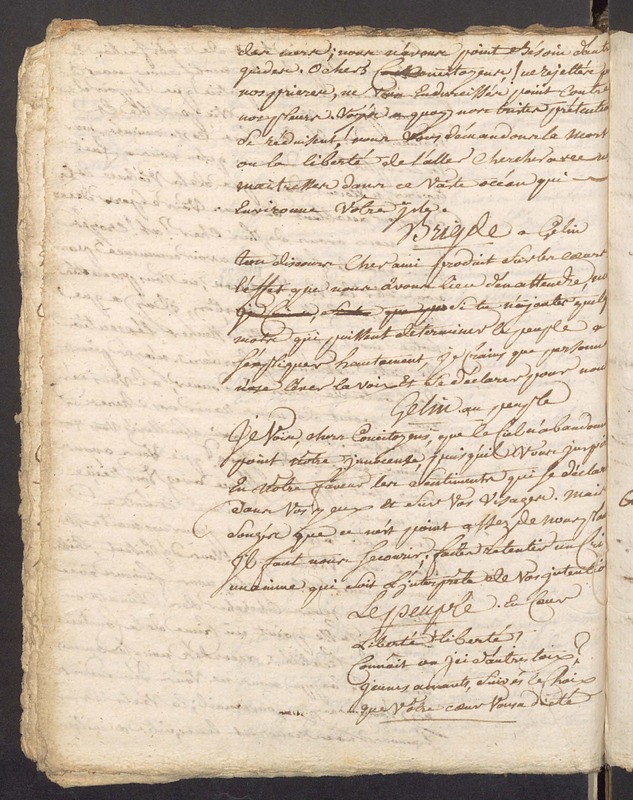 des mers; nous n'avons point besoin d'autr
guides. O chers Concitoyens! ne rejettés p
nos prieres, ne vous Endurcissés point Contre
nos pleurs. Voyés a quoy nos tristes prétentio
Se réduisent! nous Vous demandons la Mort
ou la liberté de aller chercher avec n
maitresses dans ce Vaste océan qui
Environne Votre Isle.
Brigde a Gélin
ton discours Cher ami produit Sur les cœurs
l'effet que nous avons lieu d'en attendre, m
Si tu n'ajoutes quelq
mots qui puissent déterminer le peuple a
s'expliquer hautement, Je crains que personne
n'ose Elever la voix et Se déclarer pour nous
Gélin au peuple
Je Vois, chers Concitoyens, que le Ciel n'abandonne
point notre innocence, puisqu'il Vous inspire
En Notre faveur les Sentiments qui Se déclare
dans Vos yeux et Sur Vos Visages. Mais
Songés que ce n'est point assez de nous plain
Il faut nous Secourir; faites retentir un Cri
unanime qui soit l'interprète de Vos intentio
Le peuple. En Cœur
Liberté! liberté!
Connait on ici d'autres loix?
jeunes amants, Suivés le Choix
que Votre cœur Vous a dicté